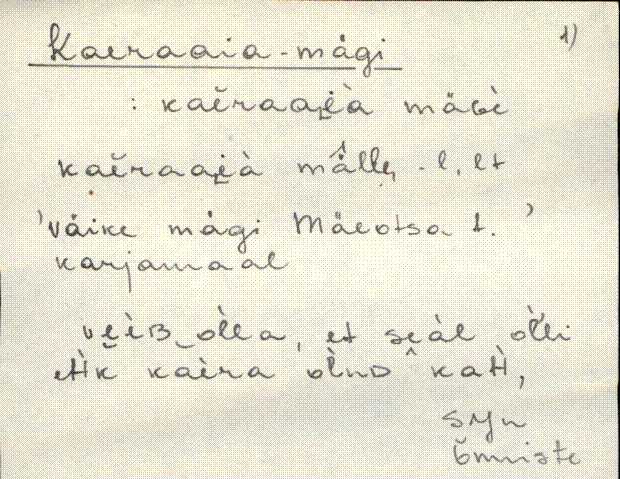 Kaeraaia-mägi 1)
: kaĕraai̯à mäɢè
kaĕraai̯à mä̂lle, -l, lt
'väike mägi Mäeotsa t.'
karjamaal
vĕìʙ‿òlla, et seàl òĺli
etìk kaèra òlnᴅ ^ katì,
Syn
Õmniste